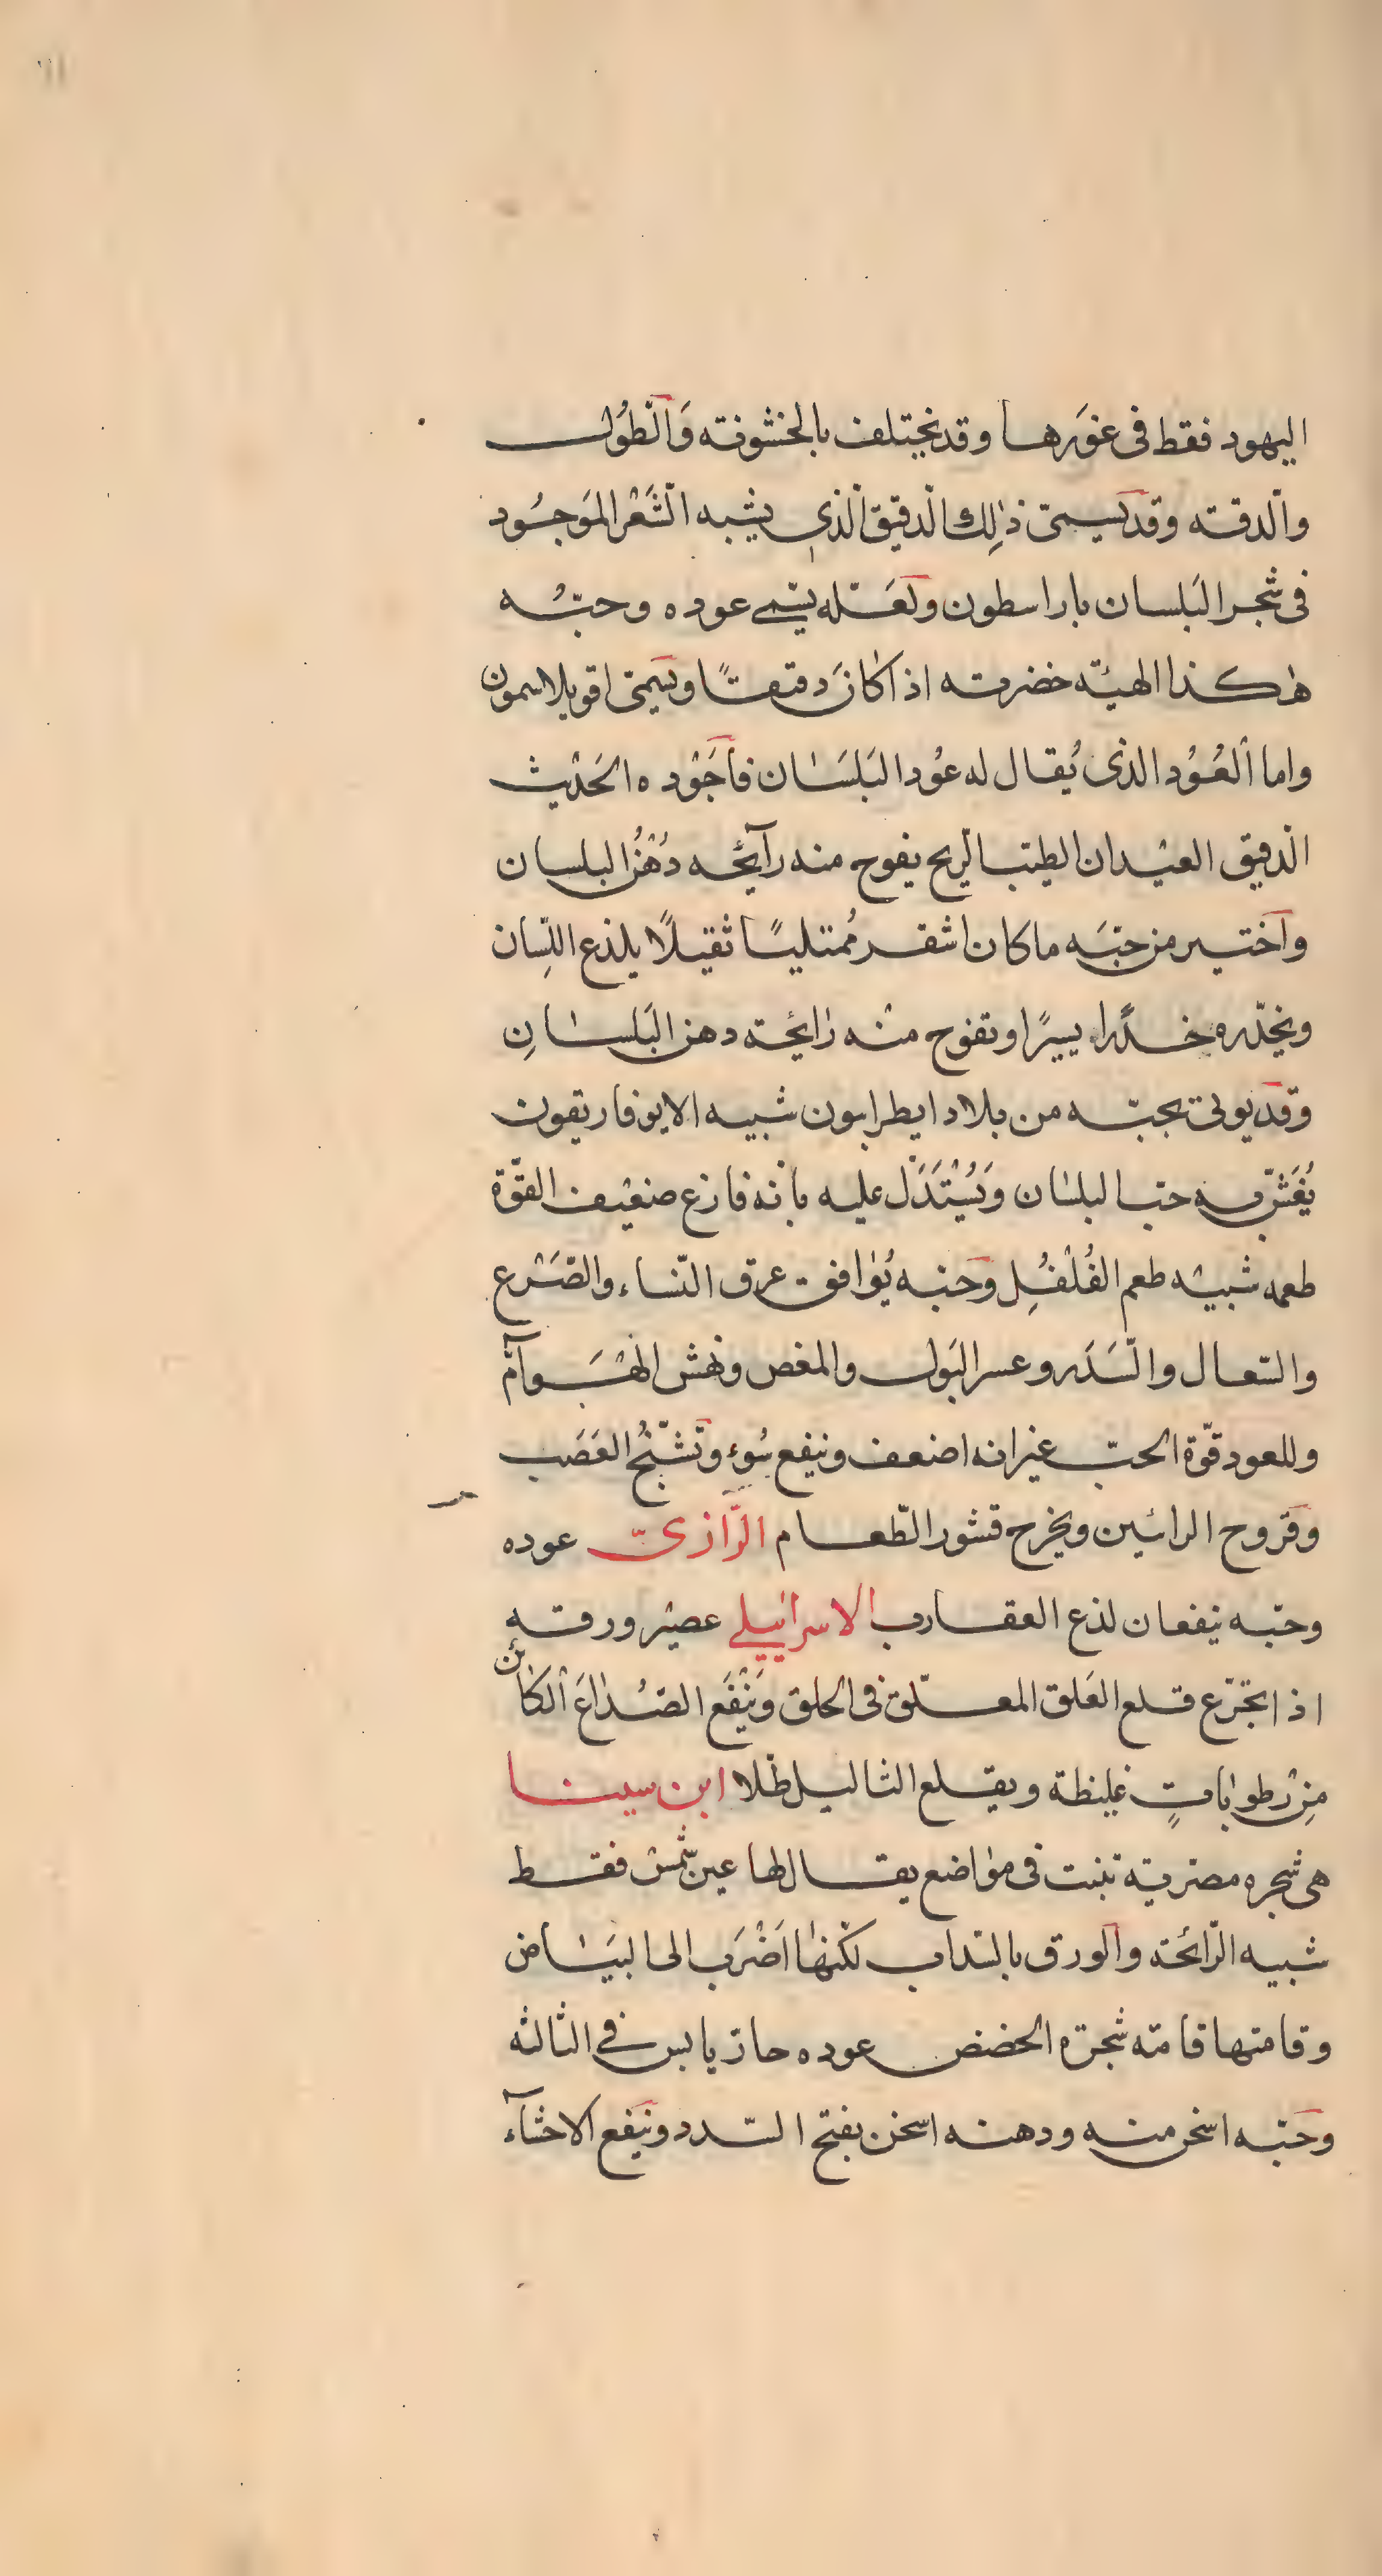 اليهود فقط فى غورها وقد يختلف بالخشونته وَالّطُول
والّدقته وقد يسمىّ ذٰلِك الّدقيق الّذى يشبه الّشَعْر المَوجُود
فى شجر البَلسان باراسطون ولعَّله يسّمى عوده وحبّه
هٰكذا الهيئة خضرته اذا كانَ دقيقًا ويسَمىّ اقوبلاسمون
واما اْلعُوُد الذى يُقال له عُود البَلَسَان فأجَوْده الحَدْيث
الّدقيق العيْدان الطيّب الّريح يفوح منه رآئحه دُهْنُ البلسان
وآختير من حبّه ما كان اشقر مُمتليًا ثقيلًا يلذع اللِسان
ويخدّره خدًرا يسيرًا وتفوح منْه رٰايحة دهن البَلسانِ
وقد يوتى بحبّه من بلاد ايطرابون شبيه الايوفاريقون
يُغَشّ به حبّ البلسٰان وَيُسْتَدَل عليه بأنه فارغ ضعْيف القّوة
طعمه شبيْه طعم الفُلْفُلِ وحبّه يُوٰافق عرق النّساء والصَرْع
والسّعال والسَّدَر وعسر البَول والمغص ونهش الهَوآمّ
وللعود قّوة الحبّ غير انه اضعف وينفع سُوء وتَشّنجُ العَصَب
وقروح الرائين ويخرج قشور الطّعام الّرازىّ عوده
وحبّه ينفعان لذع العقارب الاسرائيلى عصيْر ورقه
اذا تجّرع قلع العَلق المعلّق فى الحلق وَيْنفَع الصُدٰاعَ اْلكٰائن
مِنْ رطوبٰاتٍ غليظة ويقلع الثاليل طلا ابن سينا
هى شجره مصْريّة تنبت فى موٰاضع يقال لها عين شْمسْ فقط
شبيه الّرائحة والورق بالسّداب لكنهٰا اَضْرَب الى البيَاض
وقامتها قامته شجرة الحضض عوده حارّ يابس فى الثالثه
وحَبّه اسخن منه ودهنه اسخن يفتح السّدد وينفع الاحشآء